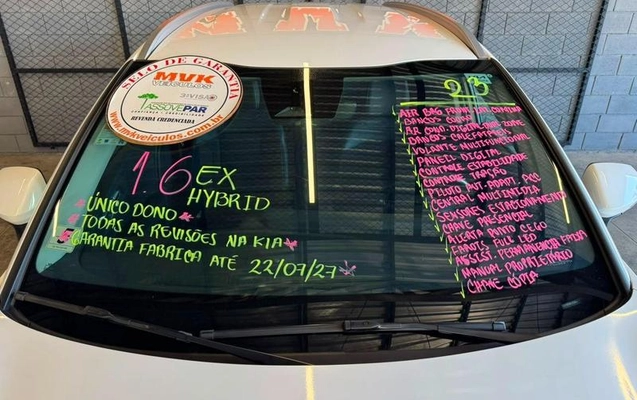 SELO DE GARANTIA
MVK
VEÍCULOS
ASSOVEPAR
REVENDA CREDENCIADA
www.mvkveiculos.com.br
1.6 EX
HYBRID
ÚNICO DONO
TODAS AS REVISÕES NA KIA
GARANTIA FABRICA ATÉ 22/07/27
23
AIR BAG
BANCOS COURO
AR COND. DIGITAL DUAL ZONE
VOLANTE MULTIFUNCIONAL
PAINEL DIGITAL
CONTROLE ESTABILIDADE
CONTROLE TRAÇÃO
PILOTO AUT. ADAPT. ACC
CENTRAL MULTIMIDIA
SENSORES ESTACIONAMENTO
CHAVE PRESENCIAL
ALERTA PONTO CEGO
FAROIS FULL LED
ASSIST. PERMANENCIA FAIXA
MANUAL PROPRIETÁRIO
CHAVE CÓPIA